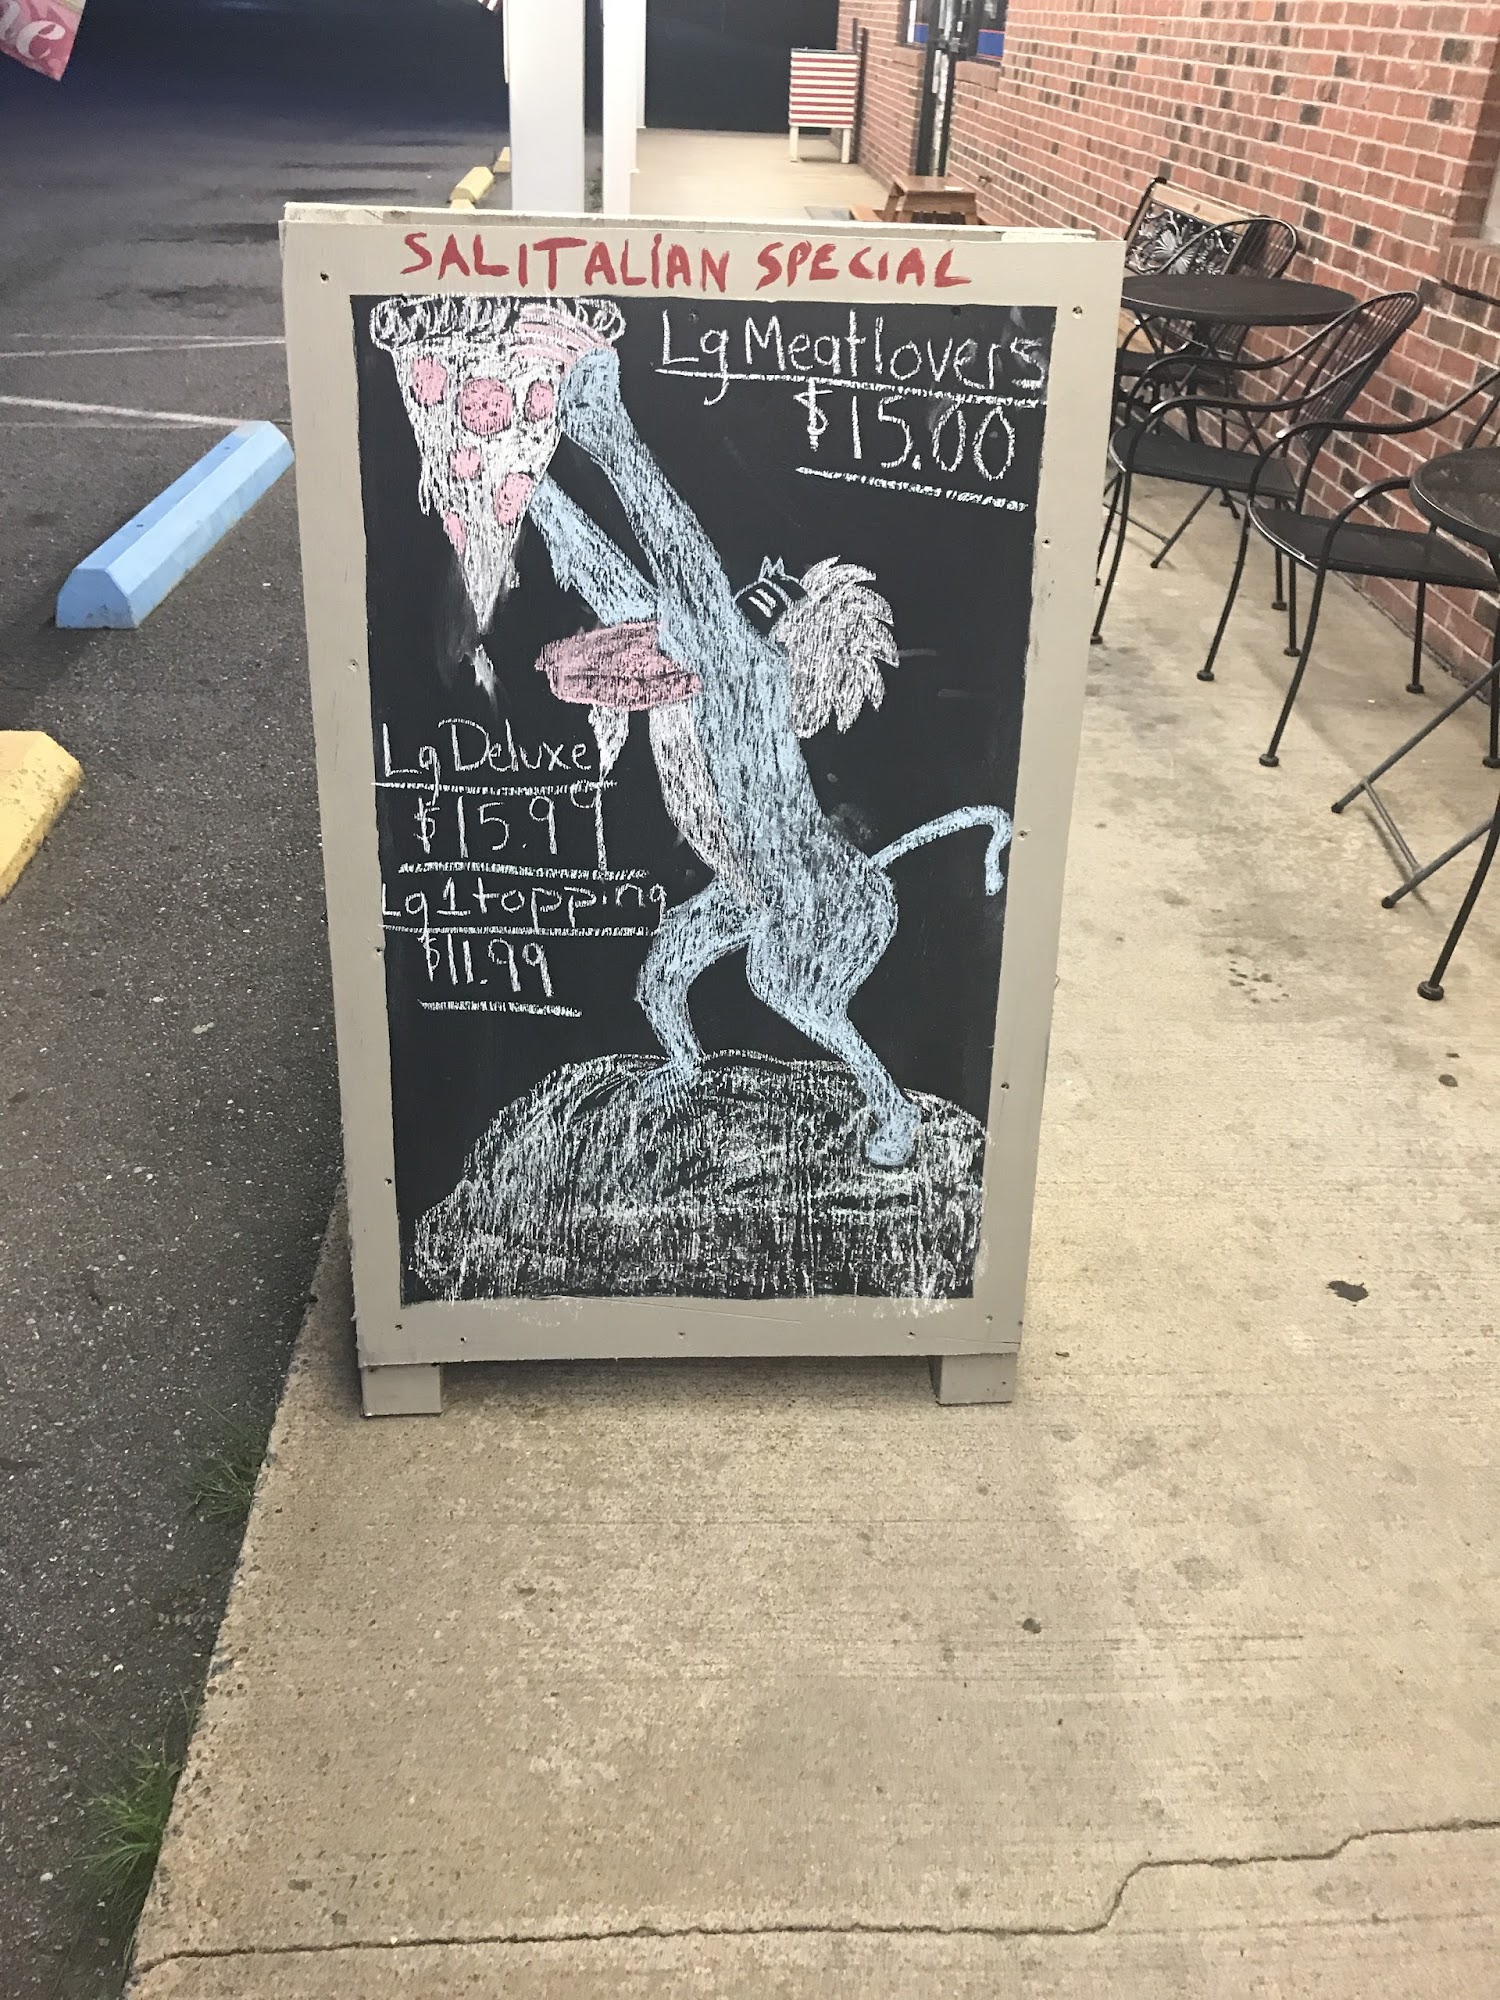 SALITALiAN SPECIAL
Lg Meatlovers
$15.00
Lg Deluxe
$15.99
Lg 1 topping
$11.99